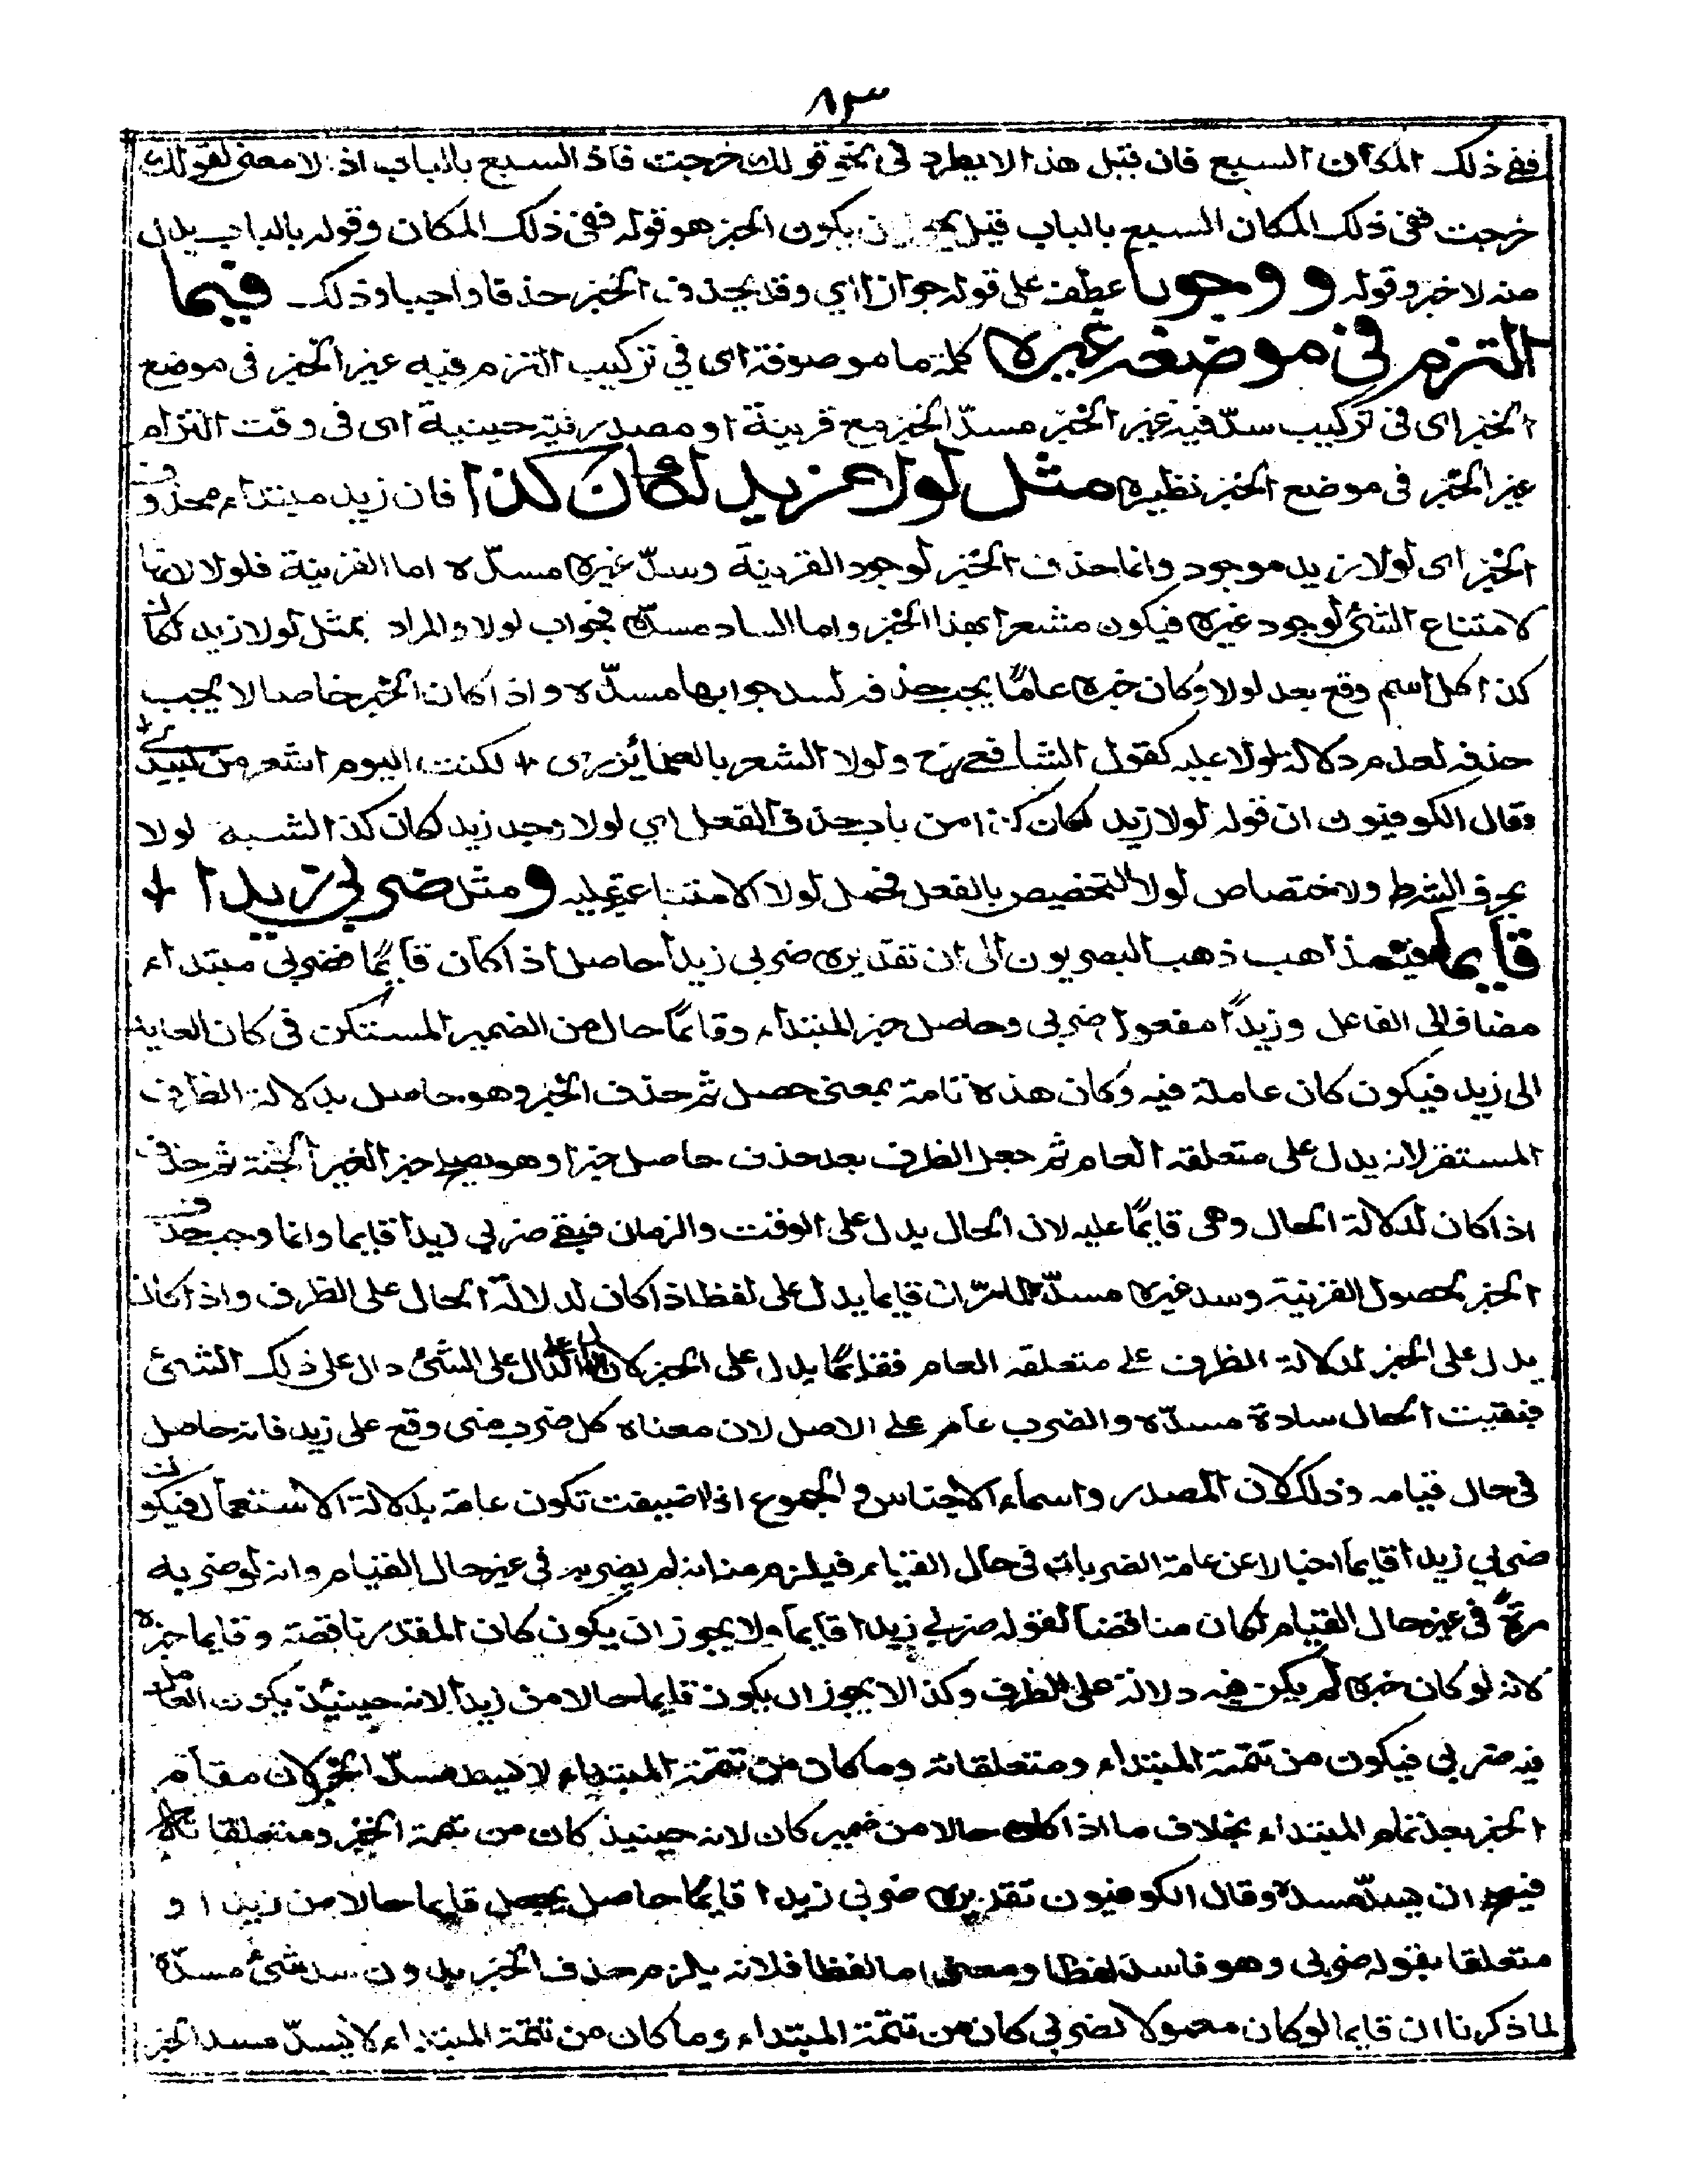 ٨٣
ففى ذلك المكان السبع فان قيل هذا لا يطرد فى نحو قولك خرجت فاذ السبع بالباب اذ لا معنى لقولك
خرجت ففى ذلك المكان السبع بالباب قيل يكون الخبر هو قوله ففى ذلك المكان وقوله بالباب بدل
منه لا خبر وقوله ووجوبا عطف على قوله جوازا اي وقد يحذف الخبر حذفا واجبا وذلك فيما
التزم فى موضعه غيره كلمة ما موصوفة اى في تركيب التزم فيه غير الخبر فى موضع
الخبر اى فى تركيب سدّ فيه غير الخبر مسدّ الخبر مع قرينة او مصدرية حينية اى فى وقت التزام
غير الخبر فى موضع الخبر نظيره مثل لولا زيد لكان كذا فان زيد مبتداء محذوف
الخبر اى لولا زيد موجود وانما حذف الخبر لوجود القرينة وسدّ غيره مسدّه اما القرينة فلولا لانها
لامتناع الشئ لوجود غيره فيكون مشعرا بهذا الخبر واما الساد مسدّه فجواب لولا والمراد بمثل لولا زيد لكان
كذا كل اسم وقع بعد لولا وكان خبره عامّا يجب حذفه لسد جوابها مسدّه واذا كان الخبر خاصا لا يجب
حذفه لعدم دلالة لولا عليه كقول الشافعى رح ولولا الشعر بالعلماء يزرى + لكنت اليوم اشعر من لبيد
وقال الكوفيون ان قوله لولا زيد لكان كذا من باب حذف الفعل اي لولا وجد زيد لكان كذا لشبه لولا
بحرف الشرط ولاختصاص لولا التخصيص بالفعل فحمل لولا الامتناعية عليه ومثل ضربي زيدا +
قايما فيه مذاهب ذهب البصريون الى ان تقديره ضربي زيدا حاصل اذا كان قايمًا فضربي مبتداء
مضاف الى الفاعل وزيدًا مفعول ضربي وحاصل خبر المبتداء وقائمًا حال من الضمير المستكن فى كان العايد
الى زيد فيكون كان عاملة فيه وكان هذه تامة بمعنى حصل ثم حذف الخبر وهو حاصل بدلالة الظرف
المستقر لانه يدل على متعلقه العام ثم جعل الظرف بعد حذف حاصل خبرا وهو يصلح خبر الغير الجثة ثم حذف
اذا كان لدلالة الحال وهى قايمًا عليه لان الحال يدل على الوقت والزمان فبقى ضربي زيدا قايما وانما وجب حذف
الخبر لحصول القرينة وسد غيره مسدّه لما مرّ ان قايما يدل على لفظ اذا كان لدلالة الحال على الظرف واذا كان
يدل على الخبر لدلالة الظرف على متعلقه العام فقايمًا يدل على الخبر لان الدال على الدال على الشئ دال على ذلك الشئ
فبقيت الحال سادة مسدّه والضرب عام على الاصل لان معناه كل ضرب منى وقع على زيد فانه حاصل
فى حال قيامه وذلك لان المصدر واسماء الاجناس و الجموع اذا اضيفت تكون عامة بدلالة الاستعمال فيكون
ضربي زيدا قايما اخبارا عن عامة الضربات فى حال القيام فيلزم منه انه لم يضربه فى غير حال القيام وانه لو ضربه
مرة فى غير حال القيام لكان مناقضا لقوله ضربي زيدا قايما ولا يجوز ان يكون كان المقدر ناقصة وقايما خبره
لانه لو كان خبره لم يكن فيه دلالة على الظرف وكذا لا يجوز ان يكون قايما حالا من زيدا لانه حينئذ يكون العامل
فيه ضربي فيكون من تتمة المبتداء ومتعلقاته وما كان من تتمة المبتداء لا يسد مسدّ الخبر لان مقام
الخبر بعد تمام المبتداء بخلاف ما اذا كان حالا من ضمير كان لانه حينئذ كان من تتمة الخبر ومتعلقاته
فيصح ان يسدّ مسدّه وقال الكوفيون تقديره ضربى زيدا قايمًا حاصل بجعل قايما حالا من زيدا او
متعلقا بقوله ضربى وهو فاسد لفظا ومعنى اما لفظا فلانه يلزم حذف الخبر بدون سد شئ مسدّه
لما ذكرنا ان قايما لو كان معمولا لضربي كان من تتمة المبتداء وما كان من تتمة المبتداء لا يسدّ مسد الخبر